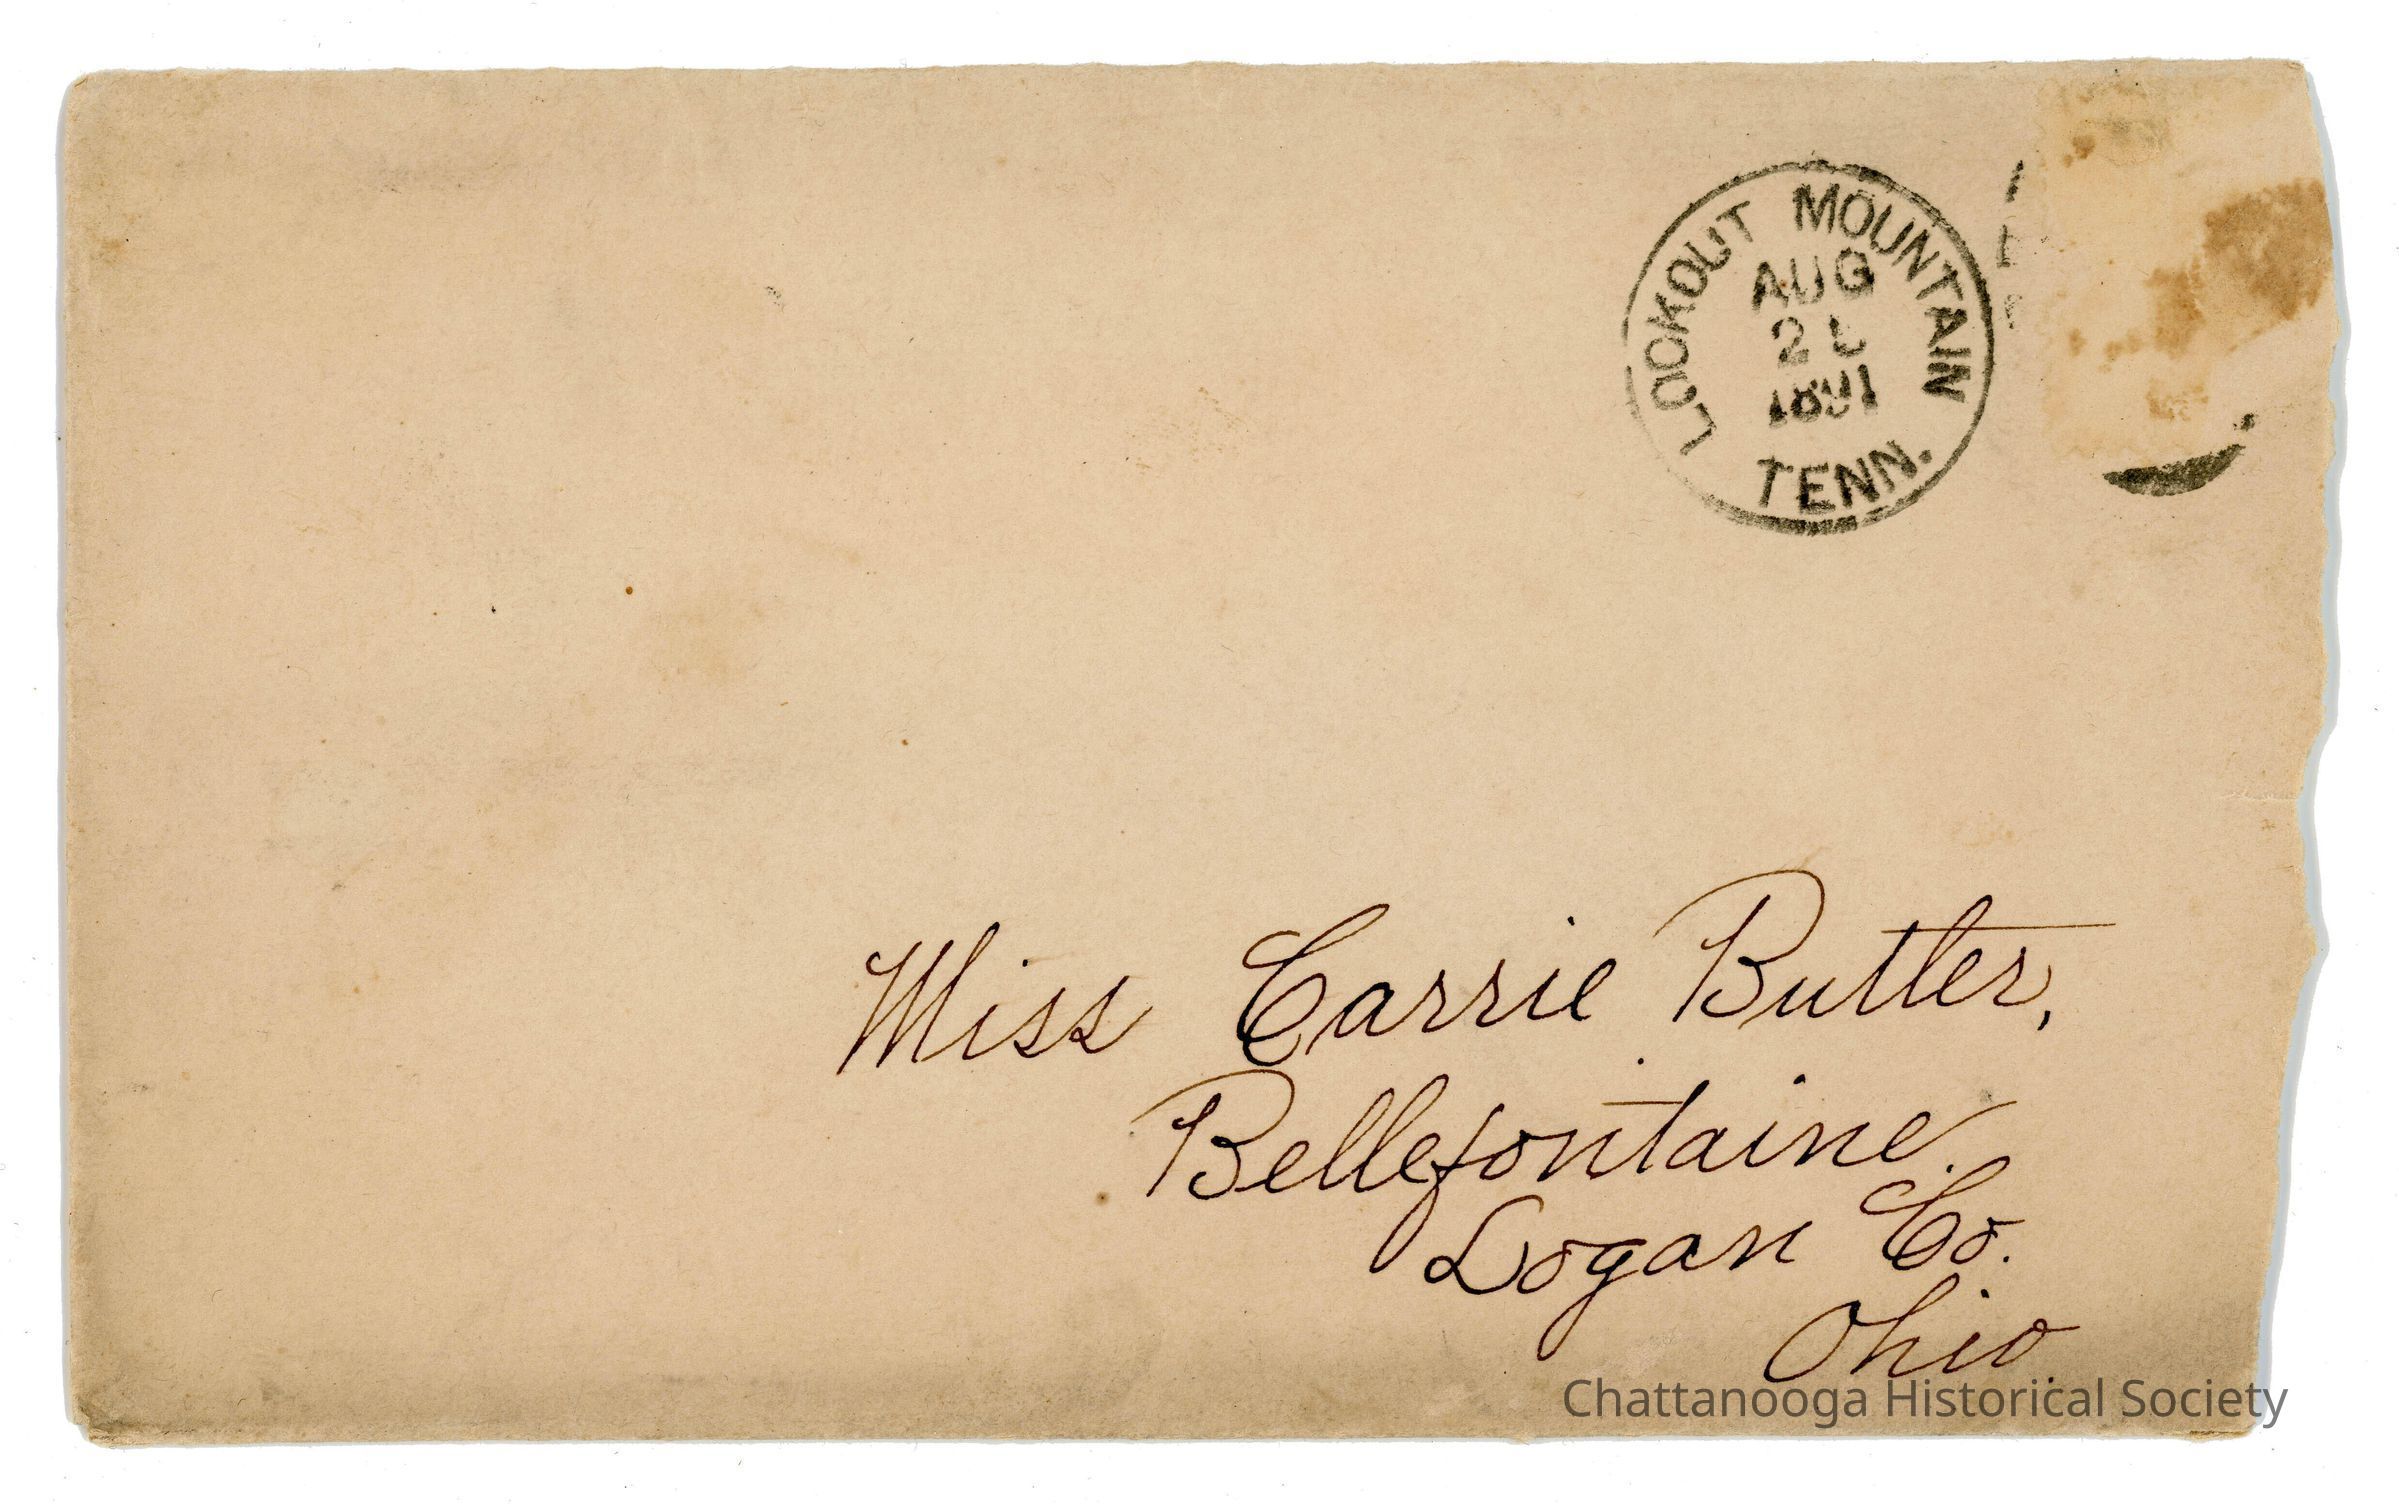 LOOKOUT MOUNTAIN
AUG
1891
TENN.
Miss Carrie Butler,
Bellefontaine.
Logan Co.
Ohio.
Chattanooga Historical Society